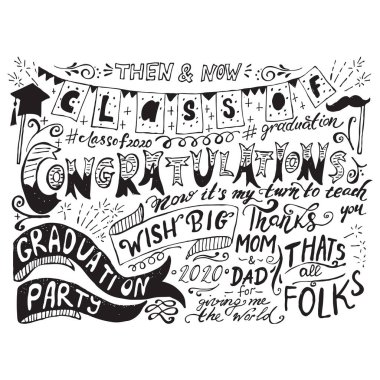 THEN & NOW
CLASS OF
#classof2020
#graduation
CONGRATULATIONS
now it's my turn to teach you
WISH BIG
GRADUATION
PARTY
2020
Thanks
MOM
&
DAD
for
giving me
the World
THATS
all
FOLKS